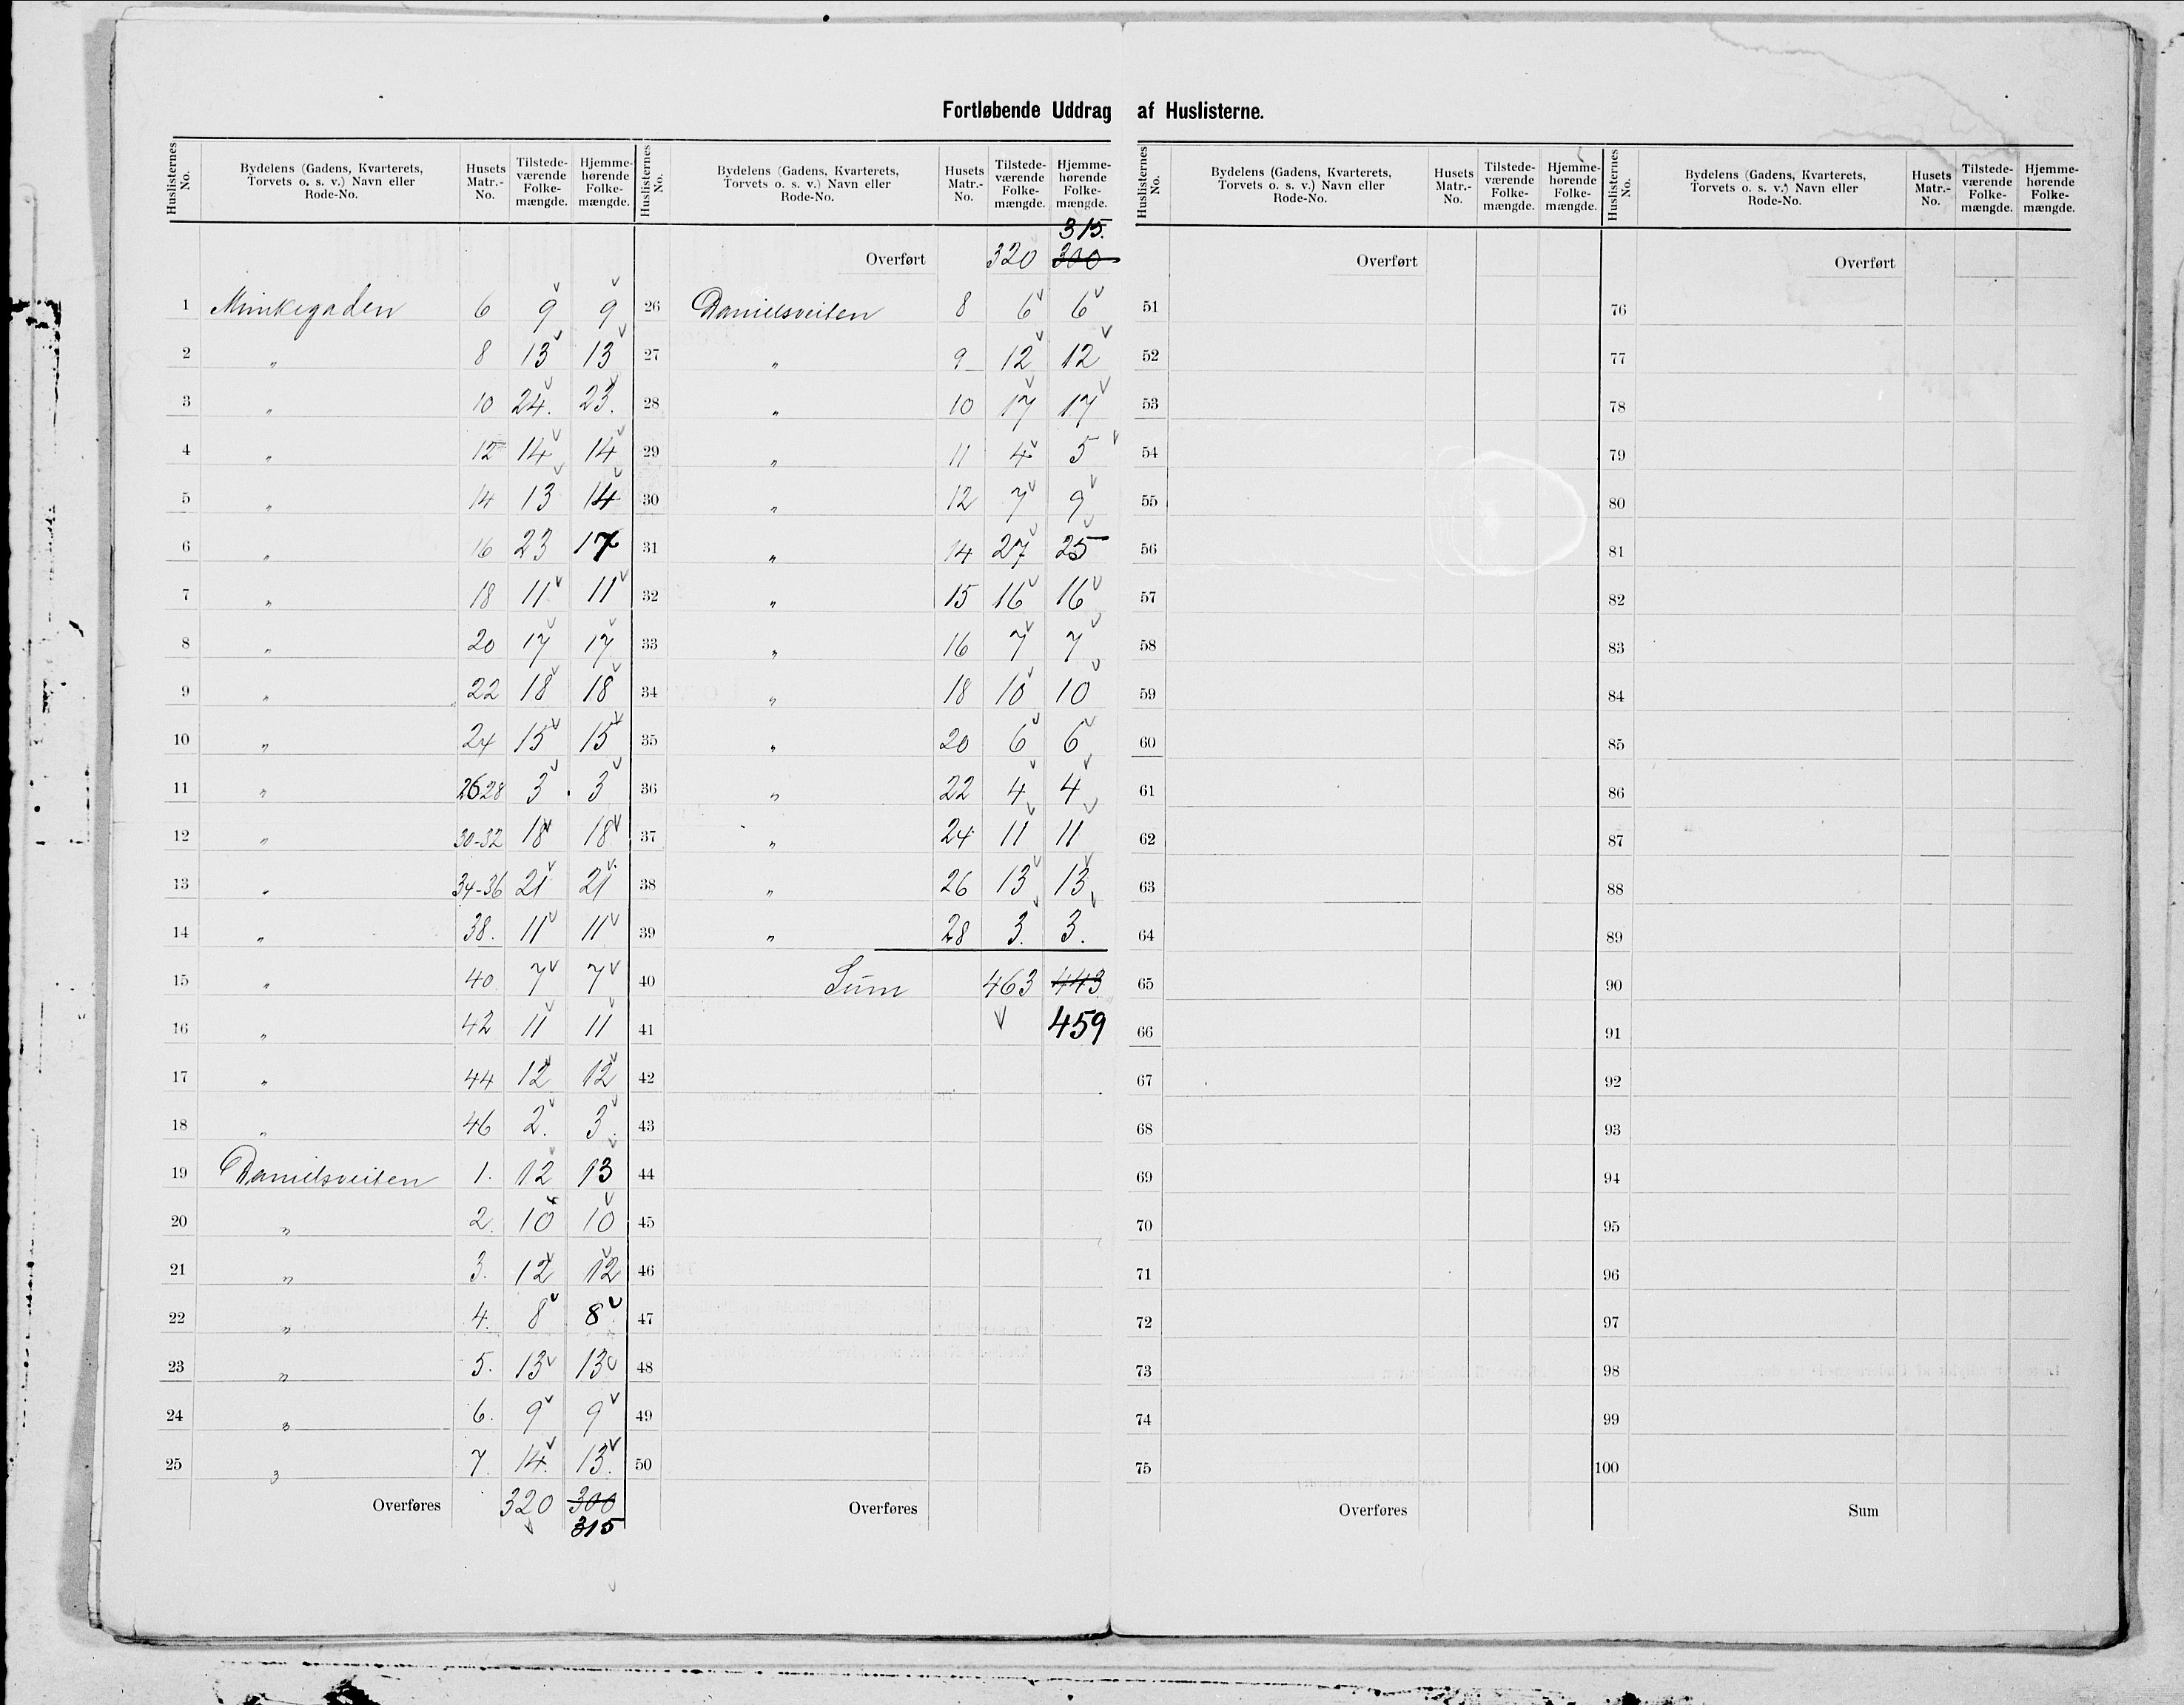 Fortløbende Uddrag af Huslisterne.
Huslisternes No. Bydelens (Gadens, Kvarterets, Torvets o. s. v.) Navn eller Rode-No. Husets Matr.-No. Tilstede-værende Folke-mængde. Hjemme-hørende Folke-mængde.
1 Munkegaden 6 9 9
2 " 8 13 13
3 " 10 24. 23.
4 " 12 14 14
5 " 14 13 14
6 " 16 23 17
7 " 18 11 11
8 " 20 17 17
9 " 22 18 18
10 " 24 15 15
11 " 26 28 3 3
12 " 30-32 18 18
13 " 34-36 21 21
14 " 38. 11 11
15 " 40 7 7
16 " 42 11 11
17 " 44 12 12
18 " 46 2. 3.
19 Danielsveiten 1. 12 13
20 " 2. 10 10
21 " 3. 12 12
22 " 4. 8 8
23 " 5. 13 13
24 " 6. 9 9
25 " 7. 14. 13.
Overføres 320 300
315
Huslisternes No. Bydelens (Gadens, Kvarterets, Torvets o. s. v.) Navn eller Rode-No. Husets Matr.-No. Tilstede-værende Folke-mængde. Hjemme-hørende Folke-mængde.
315.
Overført 320 300
26 Danielsveiten 8 6 6
27 " 9 12 12
28 " 10 17 17
29 " 11 4 5
30 " 12 7 9
31 " 14 27 25
32 " 15 16 16
33 " 16 7 7
34 " 18 10 10
35 " 20 6 6
36 " 22 4 4
37 " 24 11 11
38 " 26 13 13
39 " 28 3. 3.
40 Sum 463 443
41 459
42
43
44
45
46
47
48
49
50
Overføres
Huslisternes No. Bydelens (Gadens, Kvarterets, Torvets o. s. v.) Navn eller Rode-No. Husets Matr.-No. Tilstede-værende Folke-mængde. Hjemme-hørende Folke-mængde.
Overført
51
52
53
54
55
56
57
58
59
60
61
62
63
64
65
66
67
68
69
70
71
72
73
74
75
Overføres
Huslisternes No. Bydelens (Gadens, Kvarterets, Torvets o. s. v.) Navn eller Rode-No. Husets Matr.-No. Tilstede-værende Folke-mængde. Hjemme-hørende Folke-mængde.
Overført
76
77
78
79
80
81
82
83
84
85
86
87
88
89
90
91
92
93
94
95
96
97
98
99
100
Sum